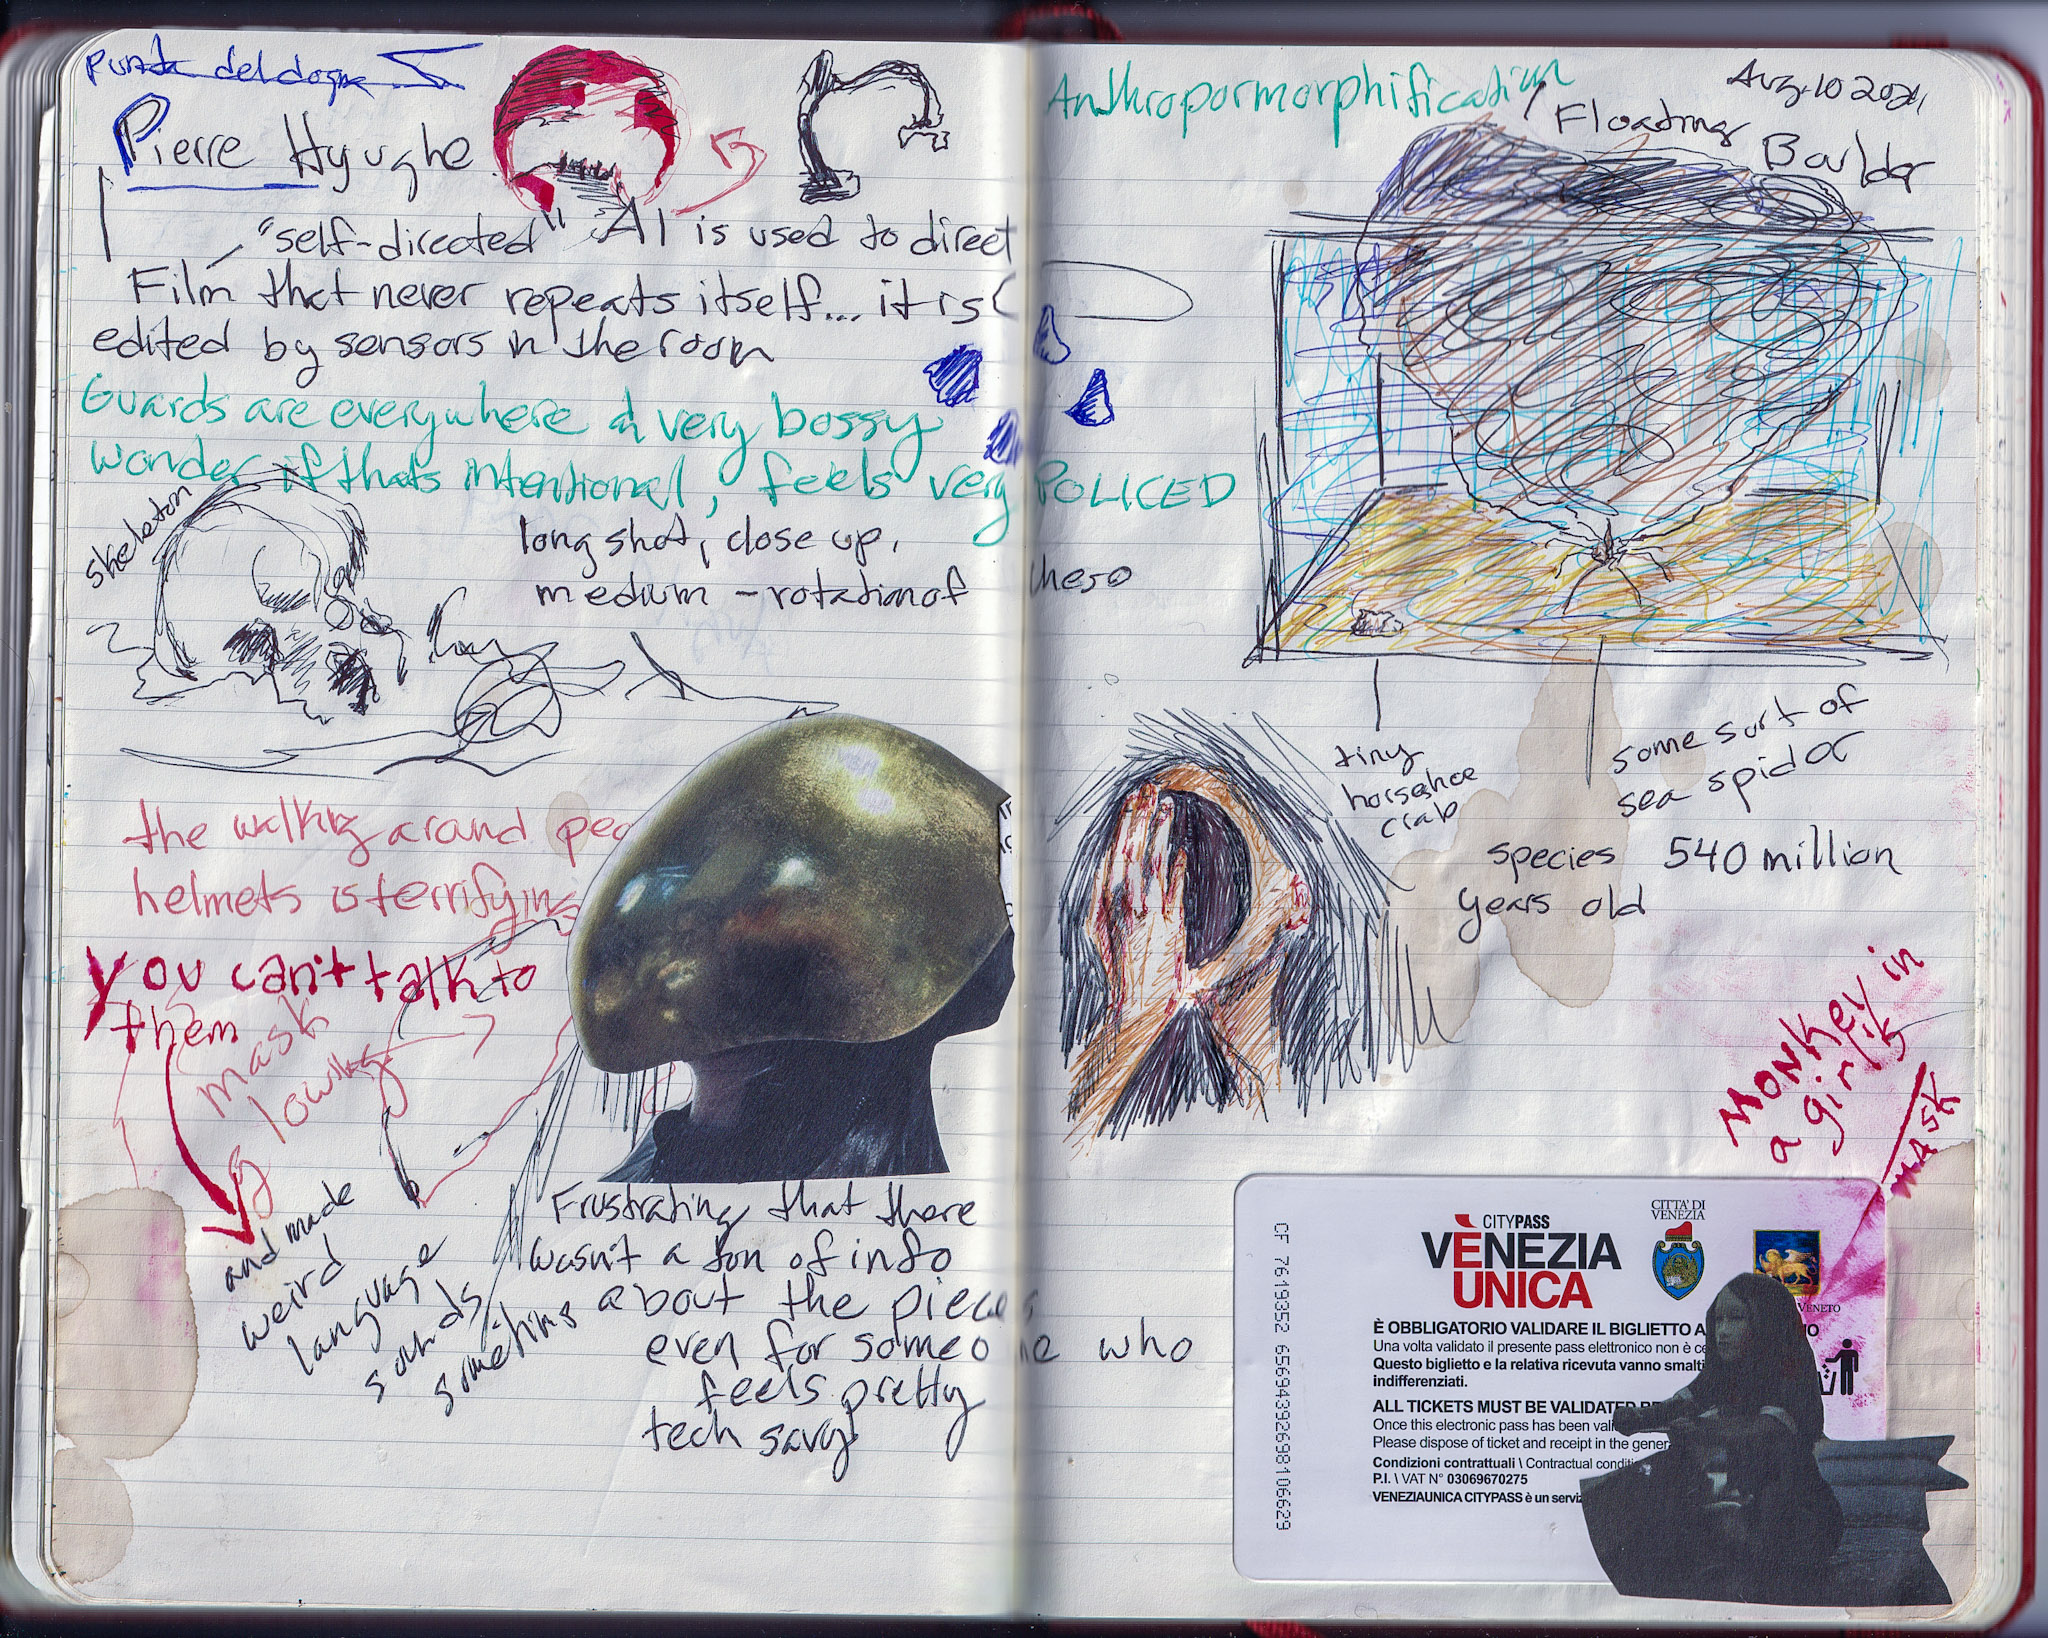 punta del dogna
Pierre Hyughe
"self-directed" AI is used to direct
Film that never repeats itself... it is
edited by sensors in the room
Guards are everywhere & very bossy
wonder if that's intentional, feels very POLICED
skeleton
long shot, close up,
medium - rotation of these
the walking around peo
helmets is terrifying
you can't talk to
them
mask
glowing
and made
weird
language
sounds
sometimes
Frustrating that there
wasn't a ton of info
about the pieces
even for someone who
feels pretty
tech savy
Anthropormorphification
Aug. 10 2024
Floating
Boulder
tiny
horseshoe
crab
some sort of
sea spider
species 540 million
years old
Monkey in
a girl
mask
CF 7619352 6569439269810 6629
CITYPASS
VÈNEZIA
UNICA
CITTA' DI
VENEZIA
VENETO
È OBBLIGATORIO VALIDARE IL BIGLIETTO A
Una volta validato il presente pass elettronico non è ce
Questo biglietto e la relativa ricevuta vanno smalti
indifferenziati.
ALL TICKETS MUST BE VALIDATED BE
Once this electronic pass has been vali
Please dispose of ticket and receipt in the gener
Condizioni contrattuali \ Contractual conditi
P.I. \ VAT N° 03069670275
VENEZIAUNICA CITYPASS è un serviz